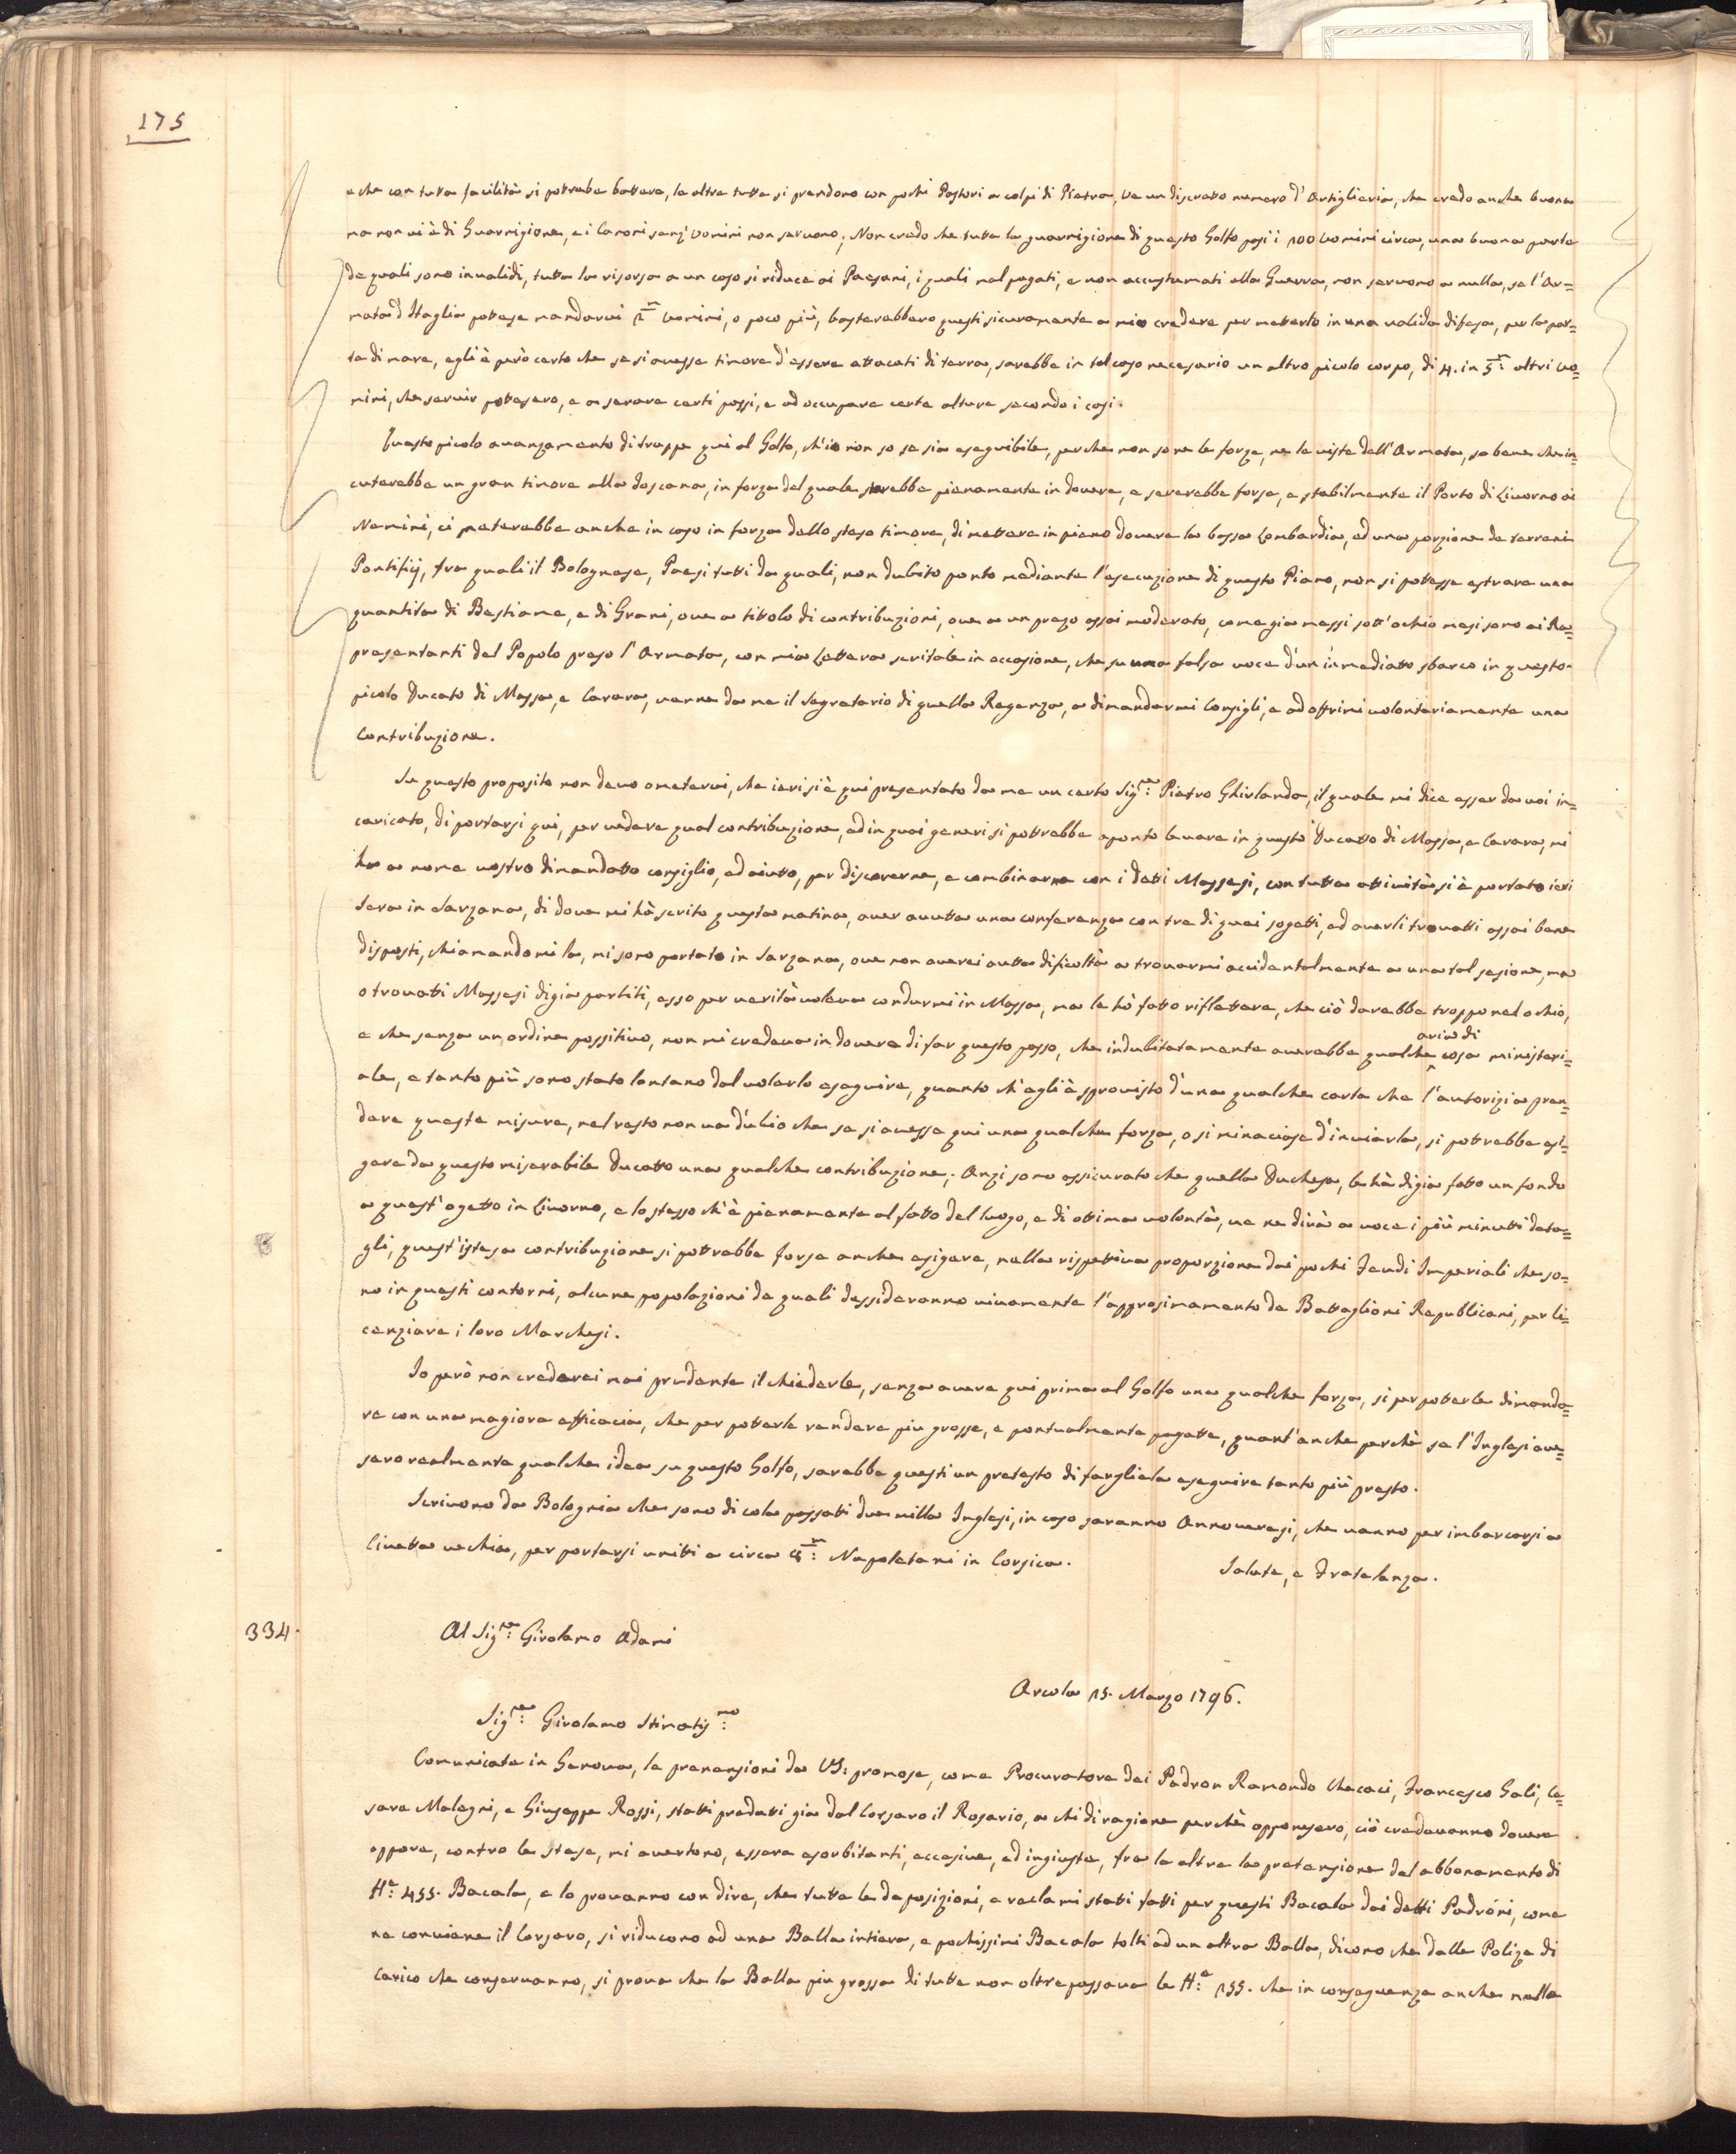 175
e che con tutta facilità si potrebe battere, le altre tutte si prendono con pochi Pastori a colpi di Pietra, ve un discretto numero d'Artiglieria, che credo anche buona
ma non vi è di Guarnigione, e i Canoni senz'Uomini non servono; Non credo che tutta la guarnigione di questo Golfo passi i 100 Uomini circa, una buona parte
de quali sono invalidi, tutta la risorsa a un caso si riduce ai Paesani, i quali mal pagati, e non accustumati alla Guerra, non servono a nulla, se l'Ar=
mata d'Itaglia potese mandarvi 2m Uomini, o poco più, basterebbero questi sicuramente a mio credere per metterlo in una valida difesa, per la par=
te di mare, egli è però certo che se si avesse timore d'essere attacati di terra, sarebbe in tal caso necesario un altro picolo corpo, di 4. in 5m: altri Uo=
mini, che servir potesero, e a serare certi passi, e ad occupare certe alture secondo i casi.
Questo picolo avanzamento di truppe qui al Golfo, ch'io non so se sia eseguibile, perche non so ne le forze, ne le viste dell'Armata, so bene che in=
cuterebbe un gran timore alla Toscana, in forza del quale starebbe pienamente in dovere, e sererebbe forse, e stabilmente il Porto di Livorno ai
Nemici, ci meterebbe anche in caso in forza dello steso timore, di mettere in pieno dovere la bassa Lombardia, ed una porzione de terreni
Pontifij, fra quali il Bolognese, Paesi tutti da quali, non dubito ponto mediante l'esecuzione di questo Piano, non si potesse estrare una
quantita di Bestiame, e di Grani, ove a titolo di contribuzioni, ove a un prezo assai moderato, come gia messi sott'ochio mesi sono ai Ra=
presentanti del Popolo preso l'Armata, con mia Lettera scritale in occasione, che su una falsa voce d'un imediatto sbarco in questo
picolo Ducato di Massa, e Carara, venne da me il Segretario di quella Regenza, a dimandarmi Consigli, e ad offrirmi volontariamente una
Contribuzione.
Su questo proposito non devo ometervi, che ieri si è qui presentato da me un certo Sigre: Pietro Ghirlanda, il quale mi dice esser da voi in=
caricato, di portarsi qui, per vedere qual contribuzione, ed in quai generi si potrebbe aponto levare in questo Ducatto di Massa, e Carara, mi
ha a nome vostro dimandatto consiglio, ed aiutto, per discorerne, e combinarne con i detti Massesi, con tutta attività si è portato ieri
sera in Sarzana, di dove mi hà scrito questa matina, aver avutta una conferenza con tre di quei sogetti, ed averli trovatti assai bene
disposti, chiamandomi la, mi sono portato in Sarzana, ove non averei autta dificoltà a trovarmi accidentalmente a una tal sesione, ma
o trovatti Massesi digia partiti, esso per verità voleva condurmi in Massa, ma le hò fatto riflettere, che ciò darebbe troppo nel ochio,
e che senza un ordine possitivo, non mi credeva in dovere di far questo passo, che indubitatamente averebbe qualche aria di cosa ministeri=
ale, e tanto più sono stato lontano dal volerlo eseguire, quanto ch'egli è sprovisto d'una qualche carta che l'autorizi a pren=
dere queste misure, nel resto non va dubio che se si avesse qui una qualche forza, o si minaciase d'inviarla, si potrebbe esi=
gere da questo miserabile Ducatto una qualche contribuzione; Anzi sono assicurato che quella Duchesa, le hà digia fatto un fondo
a quest'ogetto in Livorno, e lo stesso ch'è pienamente al fatto del luogo, e di ottima volontà, ve ne dirà a voce i più minutti deta=
gli, quest'istesa contribuzione si potrebbe forse anche esigere, nella rispettiva proporzione dai pochi Feudi Imperiali che so=
no in questi contorni, alcune popolazioni de quali dessideranno vivamente l'approsimamento de Battaglioni Republicani, per li=
cenziare i loro Marchesi.
Io però non crederei mai prudente il chiederle, senza avere qui prima al Golfo una qualche forza, si per potterle dimanda=
re con una magiore efficacia, che per potterle rendere piu grosse, e pontualmente pagatte, quant'anche perchè se l'Inglesi aves=
sero realmente qualche idea su questo Golfo, sarebbe questi un pretesto di fargliela eseguire tanto più presto.
Scrivono da Bolognia che sono di cola passati due milla Inglesi, in caso saranno Annoveresi, che vanno per imbarcarsi a
Civetta vechia, per portarsi unitti a circa 4m: Napoletani in Corsica.
Salute, e Fratelanza.
334.
Al Sigre: Girolamo Adami
Arcola 15. Marzo 1796.
Sigre: Girolamo Stimatismo:
Comunicate in Genova, le pretensioni da VS: promose, come Procuratore dei Padron Ramondo Chacaci, Francesco Gali, Ce=
sare Malegni, e Giuseppe Rossi, statti predatti gia dal Corsaro il Rosario, a chi di ragione perchè apponesero, ciò credevanno dovere
oppore, contro le stese, mi avertono, essere esorbitanti, eccesive, ed ingiuste, fra le altre la pretensione del abbonamento di
H:e 455. Bacala, e lo provanno con dire, che tutte le deposizioni, e reclami statti fatti per questi Bacala dai detti Padroni, come
ne conviene il Corsaro, si riducono ad una Balla intiera, e pochissimi Bacala tolti ad un altra Balla, dicono che dalle Polize di
Carico che conservanno, si prova che la Balla piu grossa di tutte non oltrepassava le H:e 155. che in conseguenza anche nelle